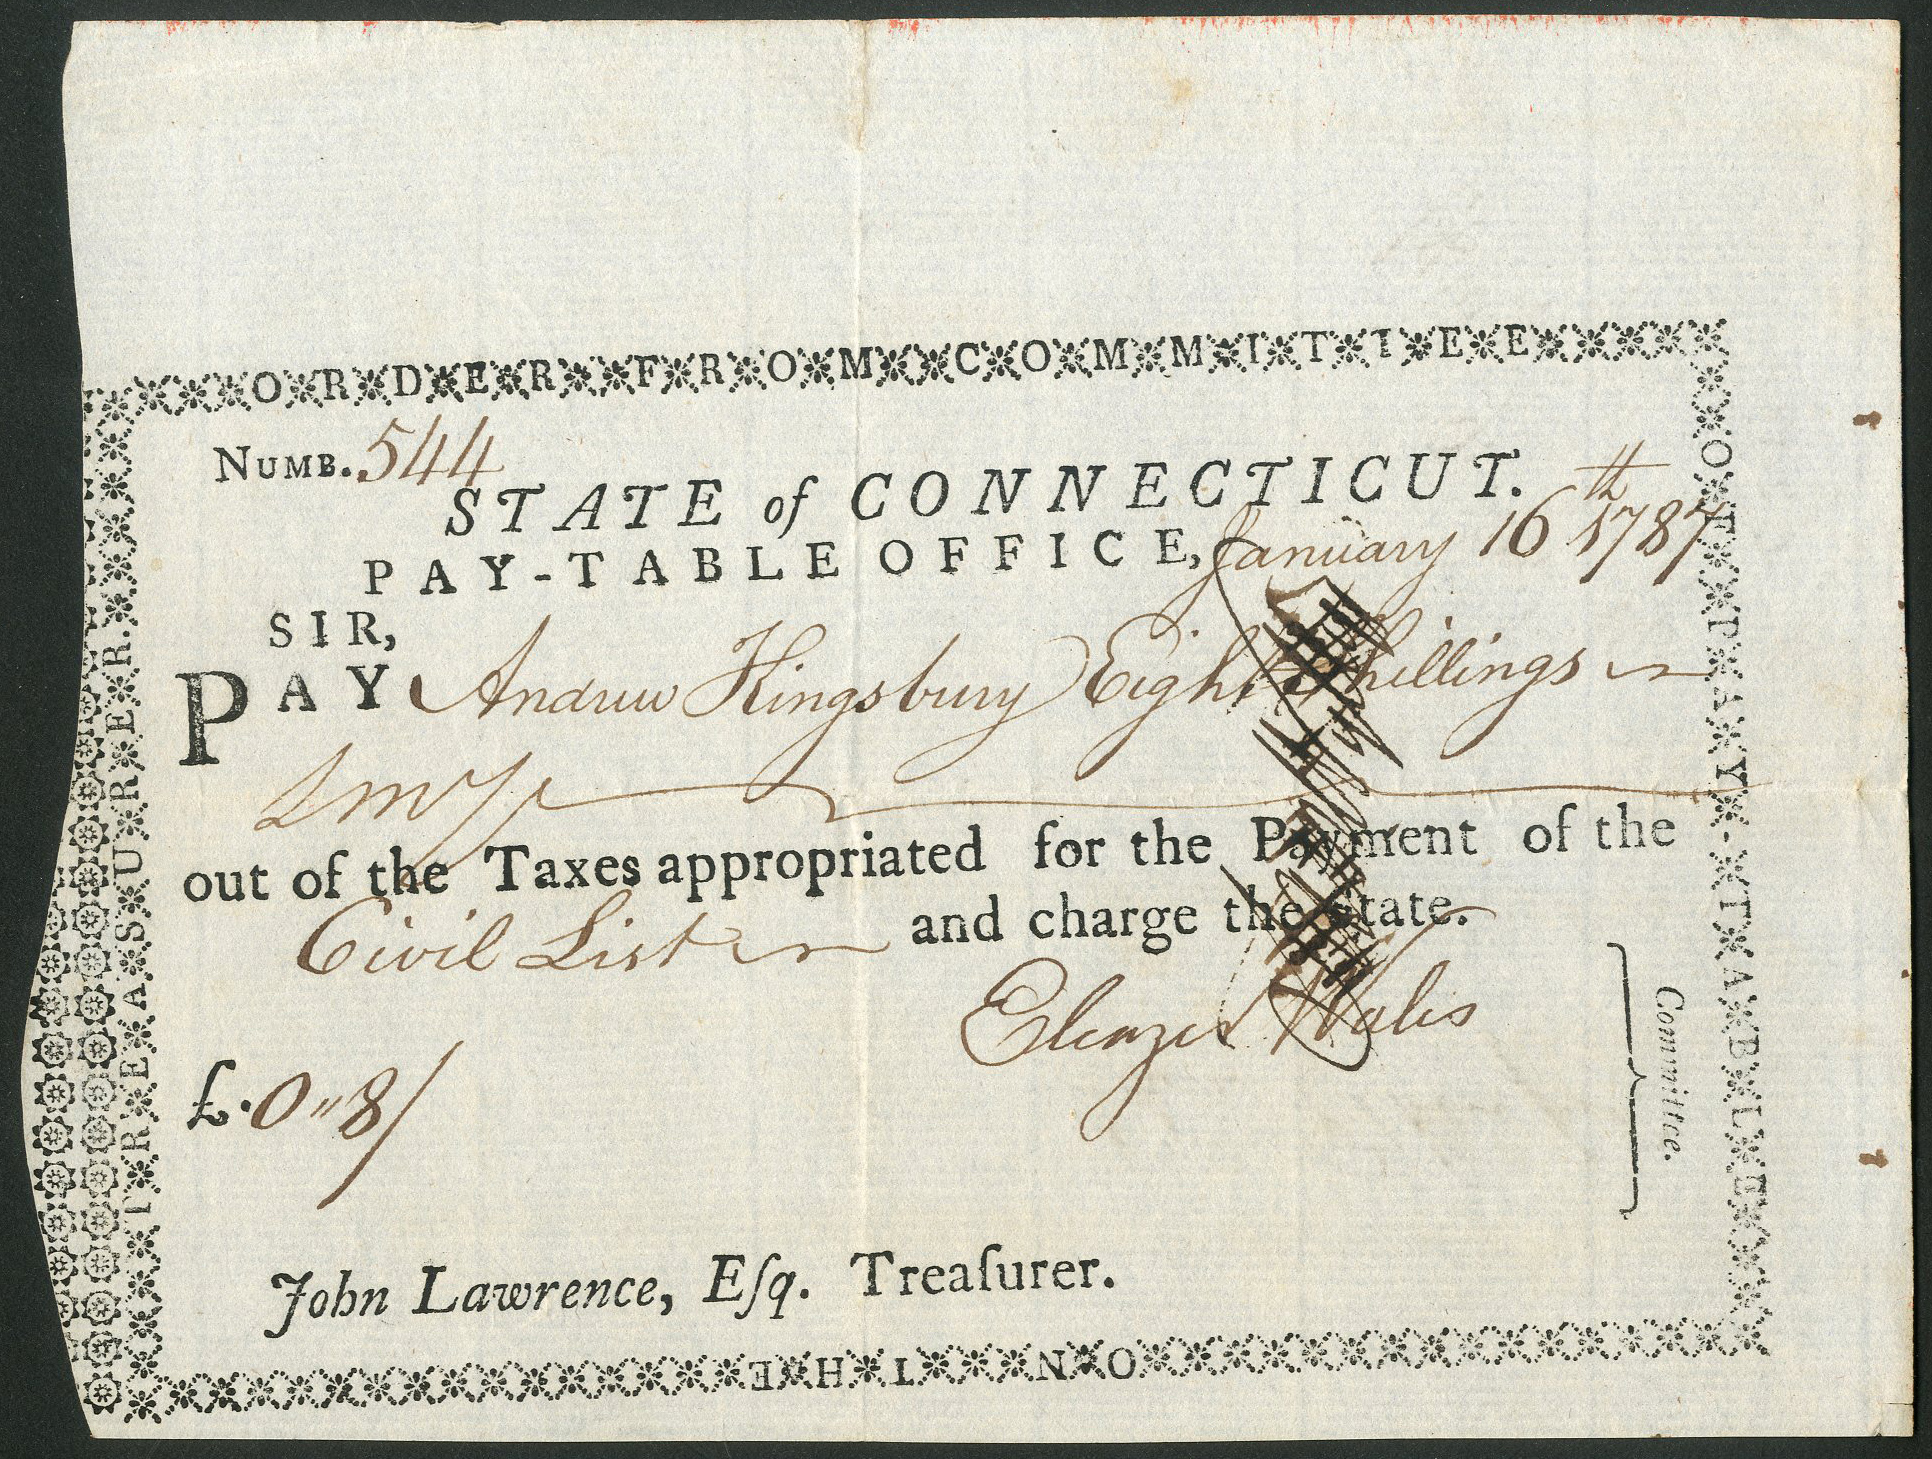 ORDER FROM COMMITTEE
OF PAY-TABLE
ON THE
TREASURER.
NUMB. 544
STATE of CONNECTICUT.
PAY-TABLE OFFICE, January 16th 1787
SIR,
PAY Andrew Kingsbury Eight Shillings
Lmy
out of the Taxes appropriated for the Payment of the
Civil List and charge the State.
Eleazer Wales
Committee.
£.0"8/
John Lawrence, Eſq. Treaſurer.